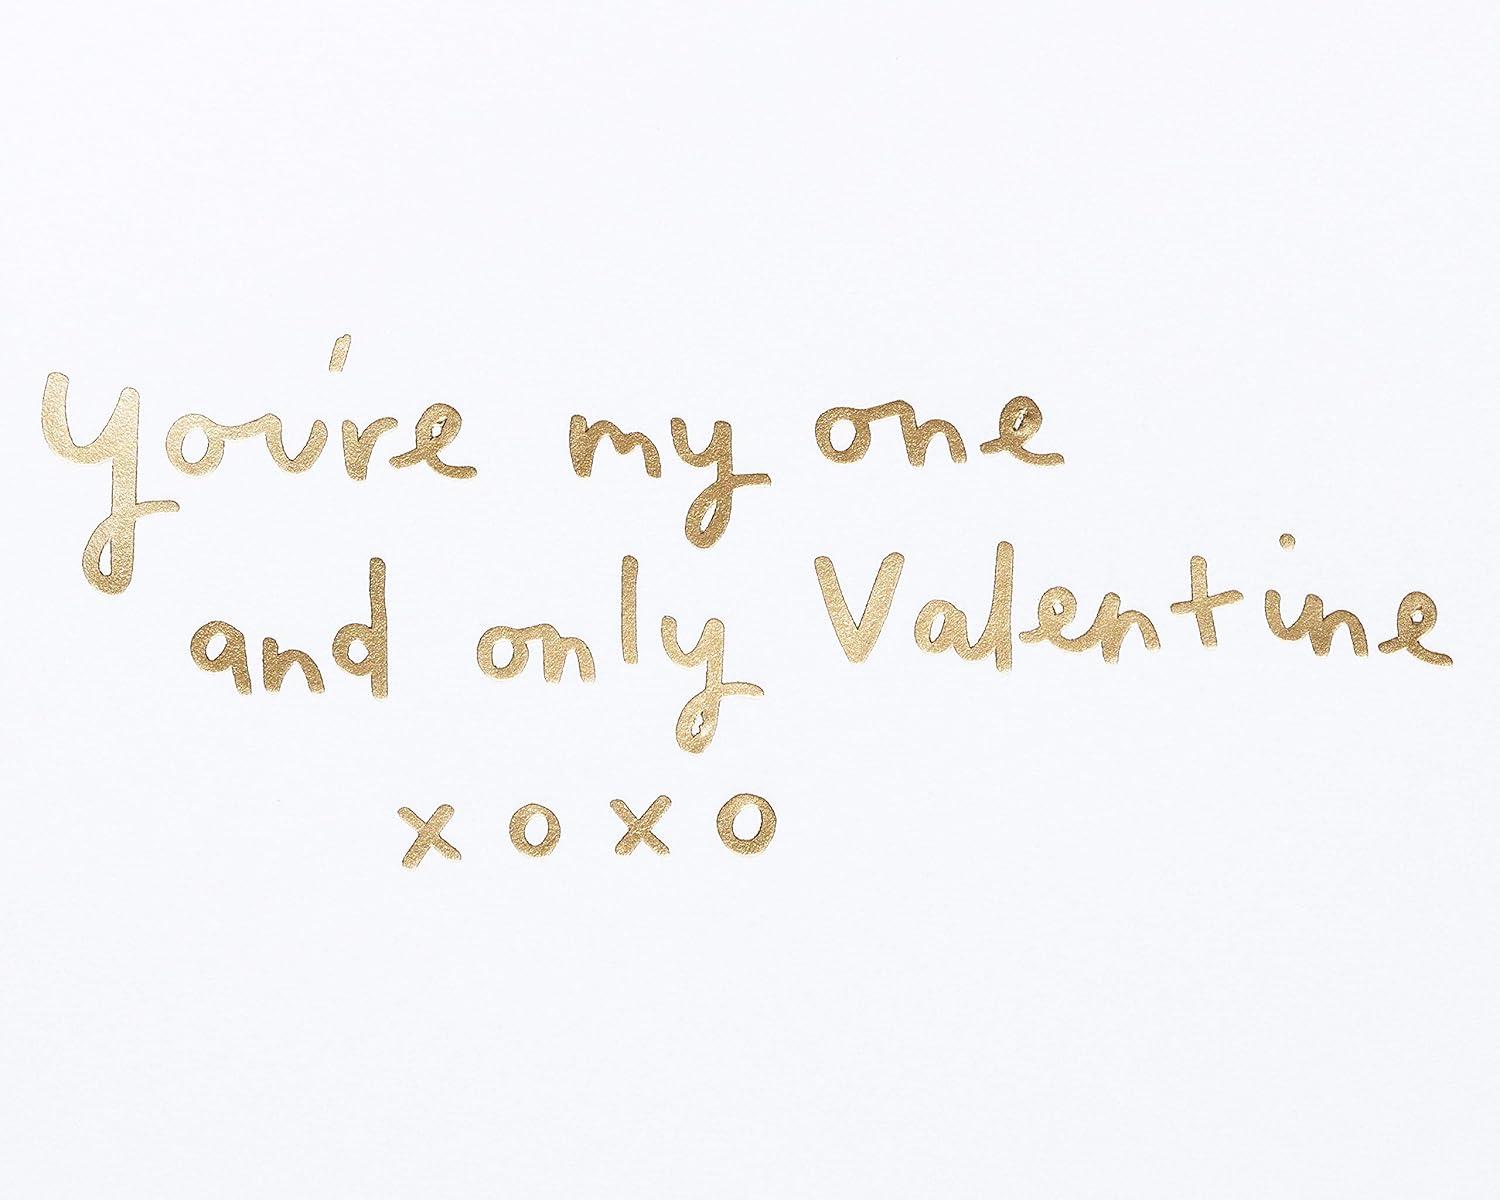 You're my one
and only Valentine
xoxo